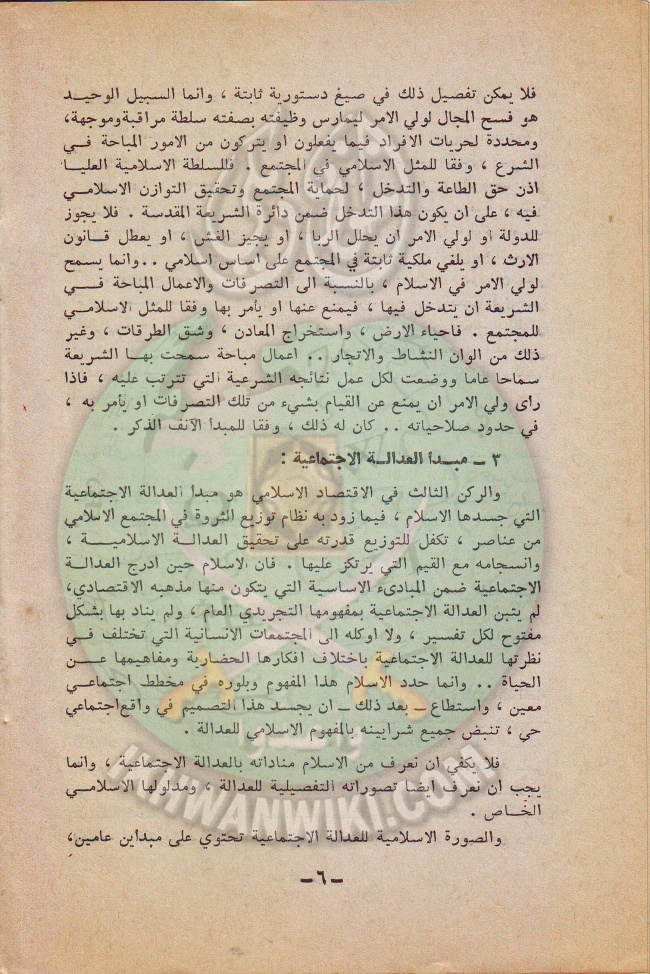 فلا يمكن تفصيل ذلك في صيغ دستورية ثابتة ، وانما السبيل الوحيد
هو فسح المجال لولي الامر ليمارس وظيفته بصفته سلطة مراقبة وموجهة،
ومحددة لحريات الافراد فيما يفعلون او يتركون من الامور المباحة في
الشرع ، وفقا للمثل الاسلامي في المجتمع . فللسلطة الاسلامية العليا
اذن حق الطاعة والتدخل ، لحماية المجتمع وتحقيق التوازن الاسلامي
فيه ، على ان يكون هذا التدخل ضمن دائرة الشريعة المقدسة . فلا يجوز
للدولة او لولي الامر ان يحلل الربا ، او يجيز الغش ، او يعطل قانون
الارث ، او يلغي ملكية ثابتة في المجتمع على اساس اسلامي .. وانما يسمح
لولي الامر في الاسلام ، بالنسبة الى التصرفات والاعمال المباحة في
الشريعة ان يتدخل فيها ، فيمنع عنها او يأمر بها وفقا للمثل الاسلامي
للمجتمع . فاحياء الارض ، واستخراج المعادن ، وشق الطرقات ، وغير
ذلك من الوان النشاط والاتجار .. اعمال مباحة سمحت بها الشريعة
سماحا عاما ووضعت لكل عمل نتائجه الشرعية التي تترتب عليه ، فاذا
راى ولي الامر ان يمنع عن القيام بشيء من تلك التصرفات او يأمر به ،
في حدود صلاحياته .. كان له ذلك ، وفقا للمبدأ الآنف الذكر .
٣ ـ مبدأ العدالة الاجتماعية :
والركن الثالث في الاقتصاد الاسلامي هو مبدأ العدالة الاجتماعية
التي جسدها الاسلام ، فيما زود به نظام توزيع الثروة في المجتمع الاسلامي
من عناصر ، تكفل للتوزيع قدرته على تحقيق العدالة الاسلامية ،
وانسجامه مع القيم التي يرتكز عليها . فان الاسلام حين ادرج العدالة
الاجتماعية ضمن المبادىء الاساسية التي يتكون منها مذهبه الاقتصادي،
لم يتبن العدالة الاجتماعية بمفهومها التجريدي العام ، ولم يناد بها بشكل
مفتوح لكل تفسير ، ولا اوكله الى المجتمعات الانسانية التي تختلف في
نظرتها للعدالة الاجتماعية باختلاف افكارها الحضارية ومفاهيمها عن
الحياة .. وانما حدد الاسلام هذا المفهوم وبلوره في مخطط اجتماعي
معين ، واستطاع ـ بعد ذلك ـ ان يجسد هذا التصميم في واقع اجتماعي
حي ، تنبض جميع شرايينه بالمفهوم الاسلامي للعدالة .
فلا يكفي ان نعرف من الاسلام مناداته بالعدالة الاجتماعية ، وانما
يجب ان نعرف ايضا تصوراته التفصيلية للعدالة ، ومدلولها الاسلامي
الخاص .
والصورة الاسلامية للعدالة الاجتماعية تحتوي على مبداين عامين،
ـ ٦ ـ
IKHWANWIKI.COM